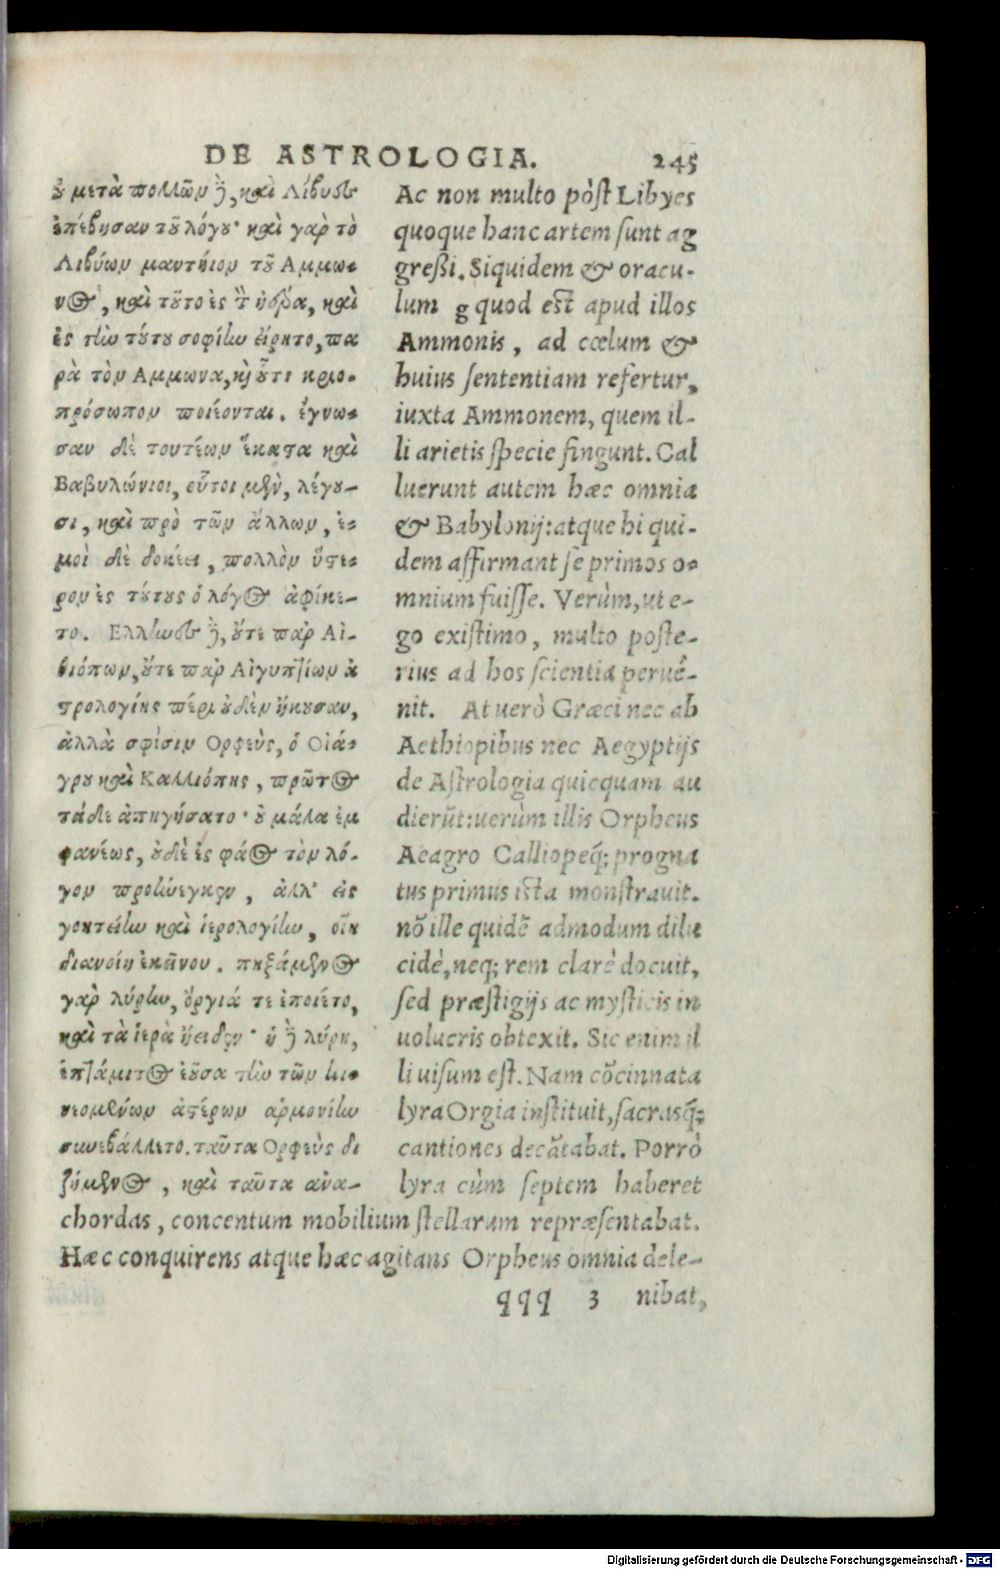 DE ASTROLOGIA. 245
ȣ̓ μετὰ πολλῶν ȷ̔̀, καὶ Λίβυες
ἐπέβησαν τȣ͂ λόγȣ· καὶ γὰρ τὸ
Λιβύων μαντήϊον τȣ͂ Αμμω-
νος, καὶ τȣ͂το ἐς τ̀ ἠέρα, καὶ
ἐς τὴν τȣ́τȣ σοφίην εἴρητο, πα
ρὰ τὸν Αμμωνα, κ̀ ȣ̔͂τι κριο-
πρόσωπον ποιέονται. ἔγνω-
σαν δὲ τουτέων ἕκαςα καὶ
Βαβυλώνιοι, οὗτοι μὲν, λέγȣ-
σι, καὶ πρὸ τῶν ἄλλων, ἐ-
μοὶ δὲ δοκέει, πολλὸν ὕςε-
ρον ἐς τȣ́τȣς ὁ λόγος ἀφίκε-
το. Ελλωες ȷ̔̀, ȣ̓́τε παρ Αἰ-
θιόπων, ȣ̓́τε παρ Αἰγυπτίων ἀ
ςρολογίης πέρι ȣ̓δὲν ἤκȣσαν,
ἀλλὰ σφίσιν Ορφεὺς, ὁ Οἰά-
γρȣ καὶ Καλλιόπης, πρῶτος
τάδε ἀπηγήσατο· ȣ̓ μάλα ἐμ
φανέως, ȣ̓δὲ ἐς φάος τὸν λό-
γον προήνεγκεν, ἀλλ' ἐς
γοητείην καὶ ἱερολογίην, οἵη
διανοίη ἐκείνου. πηξάμενος
γὰρ λύρην, ὄργιά τε ἐποιέετο,
καὶ τὰ ἱερὰ ἤειδεν· ἡ ȷ̔̀ λύρη,
ἑπτάμιτος ἐȣ͂σα τὴν τῶν κι-
νεομένων ἀςέρων ἁρμονίην
συνεβάλλετο. ταῦτα Ορφεὺς δι
ζήμενος, καὶ ταῦτα ἀνα-
Ac non multo pòst Libyes
quoque hanc artem sunt ag
gressi. Siquidem & oracu-
lum g quod est apud illos
Ammonis, ad cœlum &
huius sententiam refertur,
iuxta Ammonem, quem il-
li arietis specie fingunt. Cal
luerunt autem hæc omnia
& Babylonij: atque hi qui-
dem affirmant se primos o-
mnium fuisse. Verùm, ut e-
go existimo, multo poste-
rius ad hos scientia peruē-
nit. At uerò Græci nec ab
Aethiopibus nec Aegyptijs
de Astrologia quicquam au
dierūt: uerùm illis Orpheus
Aeagro Calliopeq́; progna
tus primus ista monstrauit.
nō ille quidē admodum dilu
cidè, neq; rem clarè docuit,
sed præstigijs ac mysticis in
uolucris obtexit. Sic enim il
li uisum est. Nam cōcinnata
lyra Orgia instituit, sacrasq́;
cantiones decātabat. Porrò
lyra cùm septem haberet
chordas, concentum mobilium stellarum repræsentabat.
Hæc conquirens atque hæc agitans Orpheus omnia dele-
qqq 3 nibat,
Digitalisierung gefördert durch die Deutsche Forschungsgemeinschaft - DFG